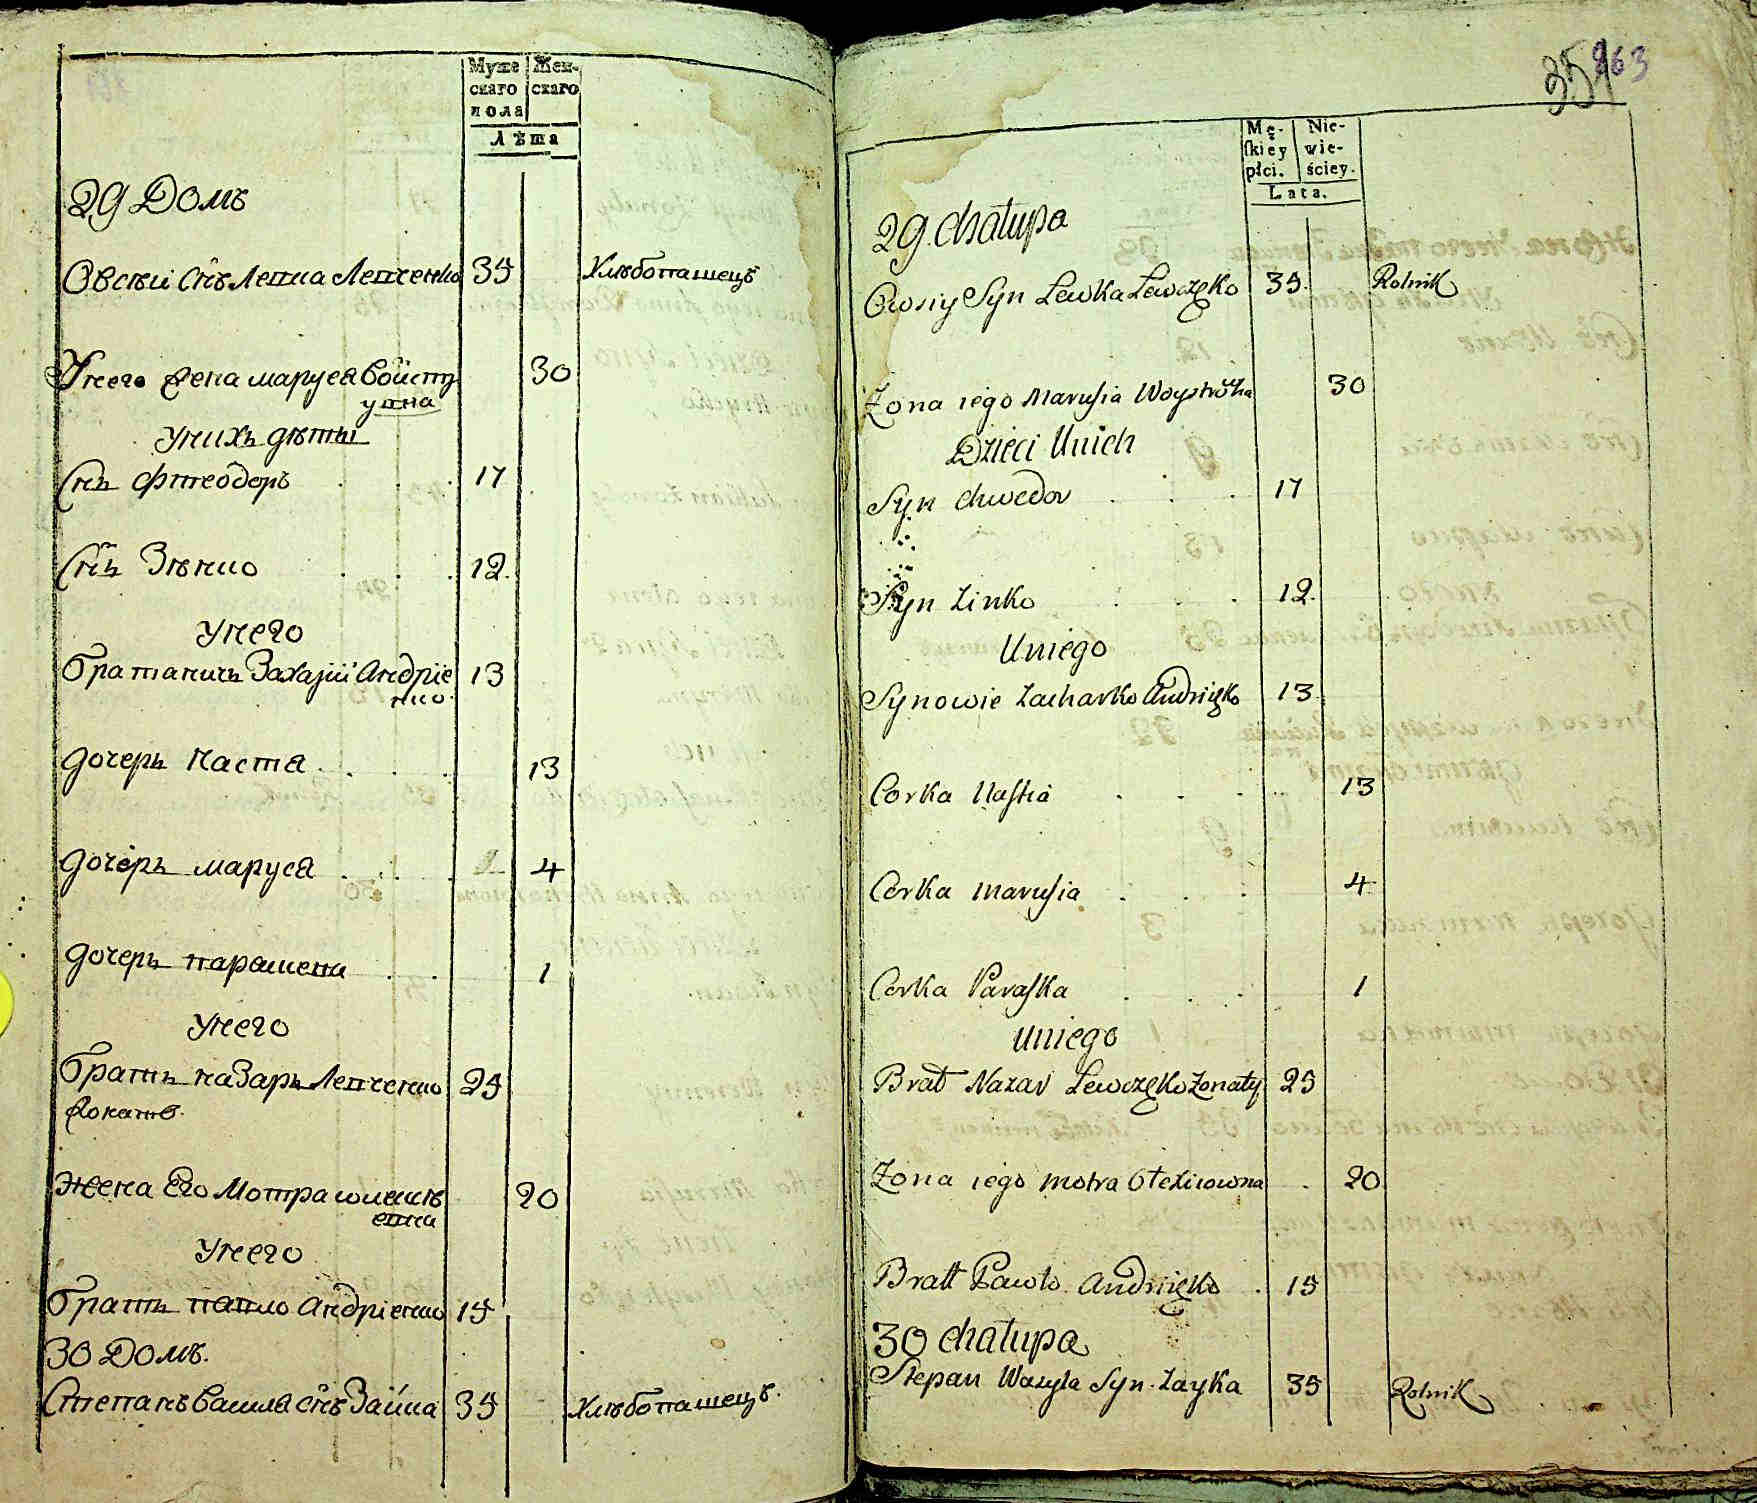 Муже
скаго
пола
Жен-
скаго
Лѣта
29 Домъ
Овсѣй Снъ Левка Левченко 35 Хлѣбопашецъ
У него жена маруся Войстру 30
ховна
У нихъ дѣти
Снъ Фтеодоръ 17
Снъ Зѣнко 12
У него
братаничъ Захарій Андріе 13
нко
дочерь Настя 13
дочерь маруся 4
дочерь парашени 1
У него
братъ Назаръ Левченко 25
жонатъ
жена Его Мотра олексѣ 20
евна
У него
братъ павло Андріенко 15
30 Домъ.
Степанъ Василя снъ Зайка 35 Хлѣбопашецъ.
351 263
Mę-
skiey
płci.
Nie-
wie-
ściey.
Lata.
29. Chałupa
Owsiy Syn Lewka Lewczęko 35. Rolnik
Żona iego Marusia 30
Dzieci Unich
Syn Chwedor 17
Syn Zinko 12.
Uniego
Synowie Zacharko Andrięko 13
Corka Nastia 13
Corka Marusia 4
Corka Paraska 1
Uniego
Brat Nazar Lewczęko Żonaty 25
Żona iego Motra Olexiiowna 20
Bratt Pawło Andrięko 15
30 Chałupa
Stepan Wazyla Syn Zayka 35 Rolnik